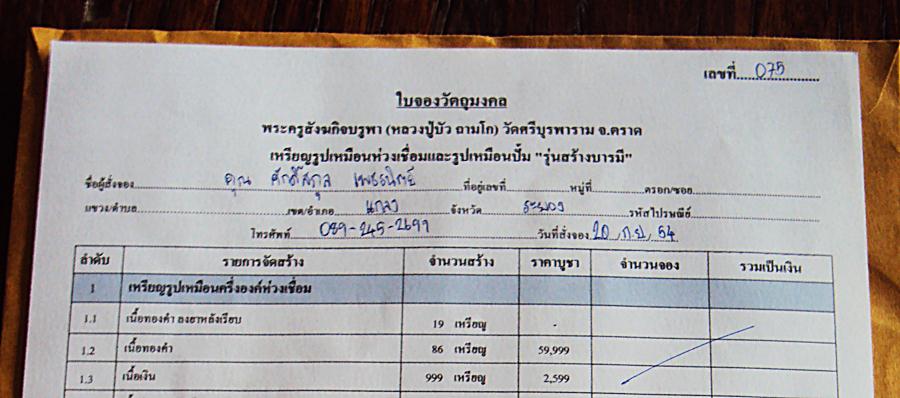 เลขที่ 075
ใบจองวัตถุมงคล
พระครูสังฆกิจบรูพา (หลวงปู่บัว ถามโก) วัดศรีบุรพาราม จ.ตราด
เหรียญรูปเหมือนห่วงเชื่อมและรูปเหมือนปั้ม "รุ่นสร้างบารมี"
ชื่อผู้สั่งจอง คุณ ศักดิ์สกุล ที่อยู่เลขที่ หมู่ที่ ตรอก/ซอย
แขวง/ตำบล เขต/อำเภอ แกลง จังหวัด ระยอง รหัสไปรษณีย์
โทรศัพท์ 089-245-2699 วันที่สั่งจอง 20 ,ก.ย, 54
ลำดับ รายการจัดสร้าง จำนวนสร้าง ราคาบูชา จำนวนจอง รวมเป็นเงิน
1 เหรียญรูปเหมือนครึ่งองค์ห่วงเชื่อม
1.1 เนื้อทองคำ ลงยาหลังเรียบ 19 เหรียญ -
1.2 เนื้อทองคำ 86 เหรียญ 59,999
1.3 เนื้อเงิน 999 เหรียญ 2,599